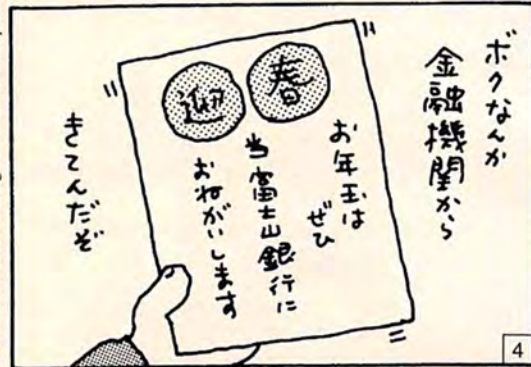 ボクなんか
金融機関から
迎春
お年玉は
ぜひ
当富士山銀行に
おねがいします
きてんだぞ
4